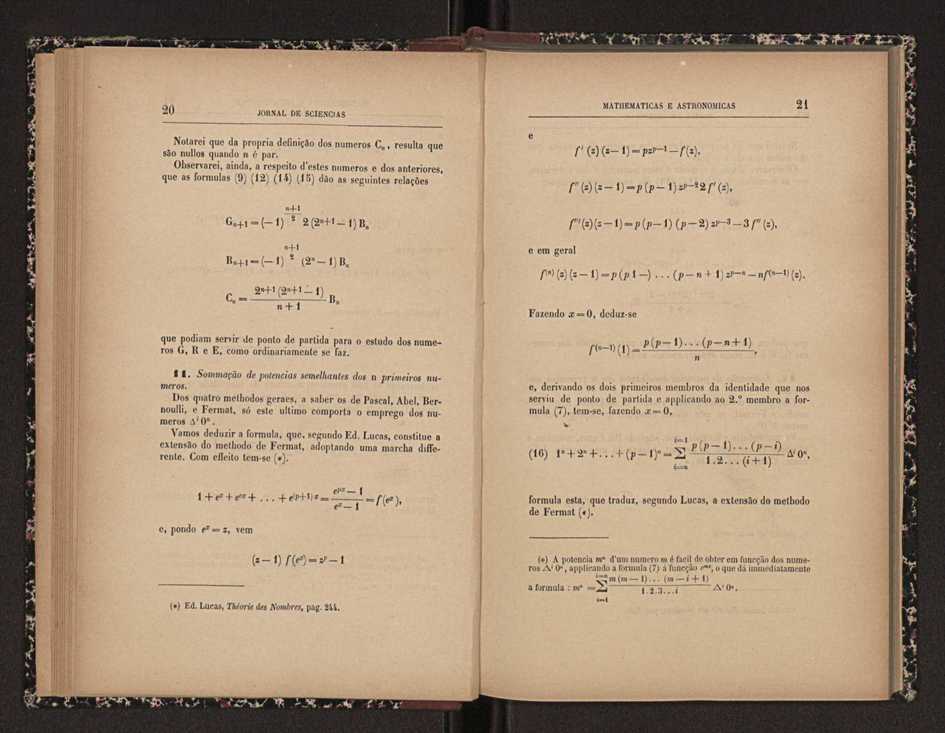 20 JORNAL DE SCIENCIAS
Notarei que da propria definição dos numeros Cₙ, resulta que
são nullos quando n é par.
Observarei, ainda, a respeito d'estes numeros e dos anteriores,
que as formulas (9) (12) (14) (15) dão as seguintes relações
Gₙ₊₁ = (— 1)^{\frac{n+1}{2}} 2 (2ⁿ⁺¹ — 1) Bₙ
Rₙ₊₁ = (— 1)^{\frac{n+1}{2}} (2ⁿ — 1) Bₙ
Cₙ = \frac{2ⁿ⁺¹ (2ⁿ⁺¹ — 1)}{n + 1} Bₙ
que podiam servir de ponto de partida para o estudo dos nume-
ros G, R e E, como ordinariamente se faz.
11. Sommação de potencias semelhantes dos n primeiros nu-
meros.
Dos quatro methodos geraes, a saber os de Pascal, Abel, Ber-
noulli, e Fermat, só este ultimo comporta o emprego dos nu-
meros Δⁱ 0ⁿ.
Vamos deduzir a formula, que, segundo Ed. Lucas, constitue a
extensão do methodo de Fermat, adoptando uma marcha diffe-
rente. Com effeito tem-se (*).
1 + e^{x} + e^{2x} + . . . + e^{(p+1)x} = \frac{e^{px} — 1}{e^{x} — 1} = f (e^{x}),
e, pondo e^{x} = z, vem
(z — 1) f (e^{x}) = z^{p} — 1
(*) Ed. Lucas, Théorie des Nombres, pag. 244.
MATHEMATICAS E ASTRONOMICAS 21
e
f' (z) (z — 1) = pz^{p—1} — f (z),
f'' (z) (z — 1) = p (p — 1) z^{p—2} 2 f' (z),
f''' (z) (z — 1) = p (p — 1) (p — 2) z^{p—3} — 3 f'' (z),
e em geral
f^{(n)} (z) (z — 1) = p (p 1 —) . . . (p — n + 1) z^{p—n} — nf^{(n—1)} (z).
Fazendo x = 0, deduz-se
f^{(n—1)} (1) = \frac{p (p — 1) . . . (p — n + 1)}{n},
e, derivando os dois primeiros membros da identidade que nos
serviu de ponto de partida e applicando ao 2.º membro a for-
mula (7), tem-se, fazendo x = 0,
(16) 1ⁿ + 2ⁿ + . . . + (p — 1)ⁿ = \sum_{i=n}^{i=1} \frac{p (p — 1) . . . (p — i)}{1 . 2 . . . (i + 1)} Δⁱ 0ⁿ,
formula esta, que traduz, segundo Lucas, a extensão do methodo
de Fermat (*).
(*) A potencia mⁿ d'um numero m é facil de obter em funcção dos nume-
ros Δⁱ 0ⁿ, applicando a formula (7) á funcção e^{mx}, o que dá immediatamente
a formula : mⁿ = \sum_{i=1}^{i=n} \frac{m (m — 1) . . . (m — i + 1)}{1 . 2 . 3 . . . i} Δⁱ 0ⁿ.